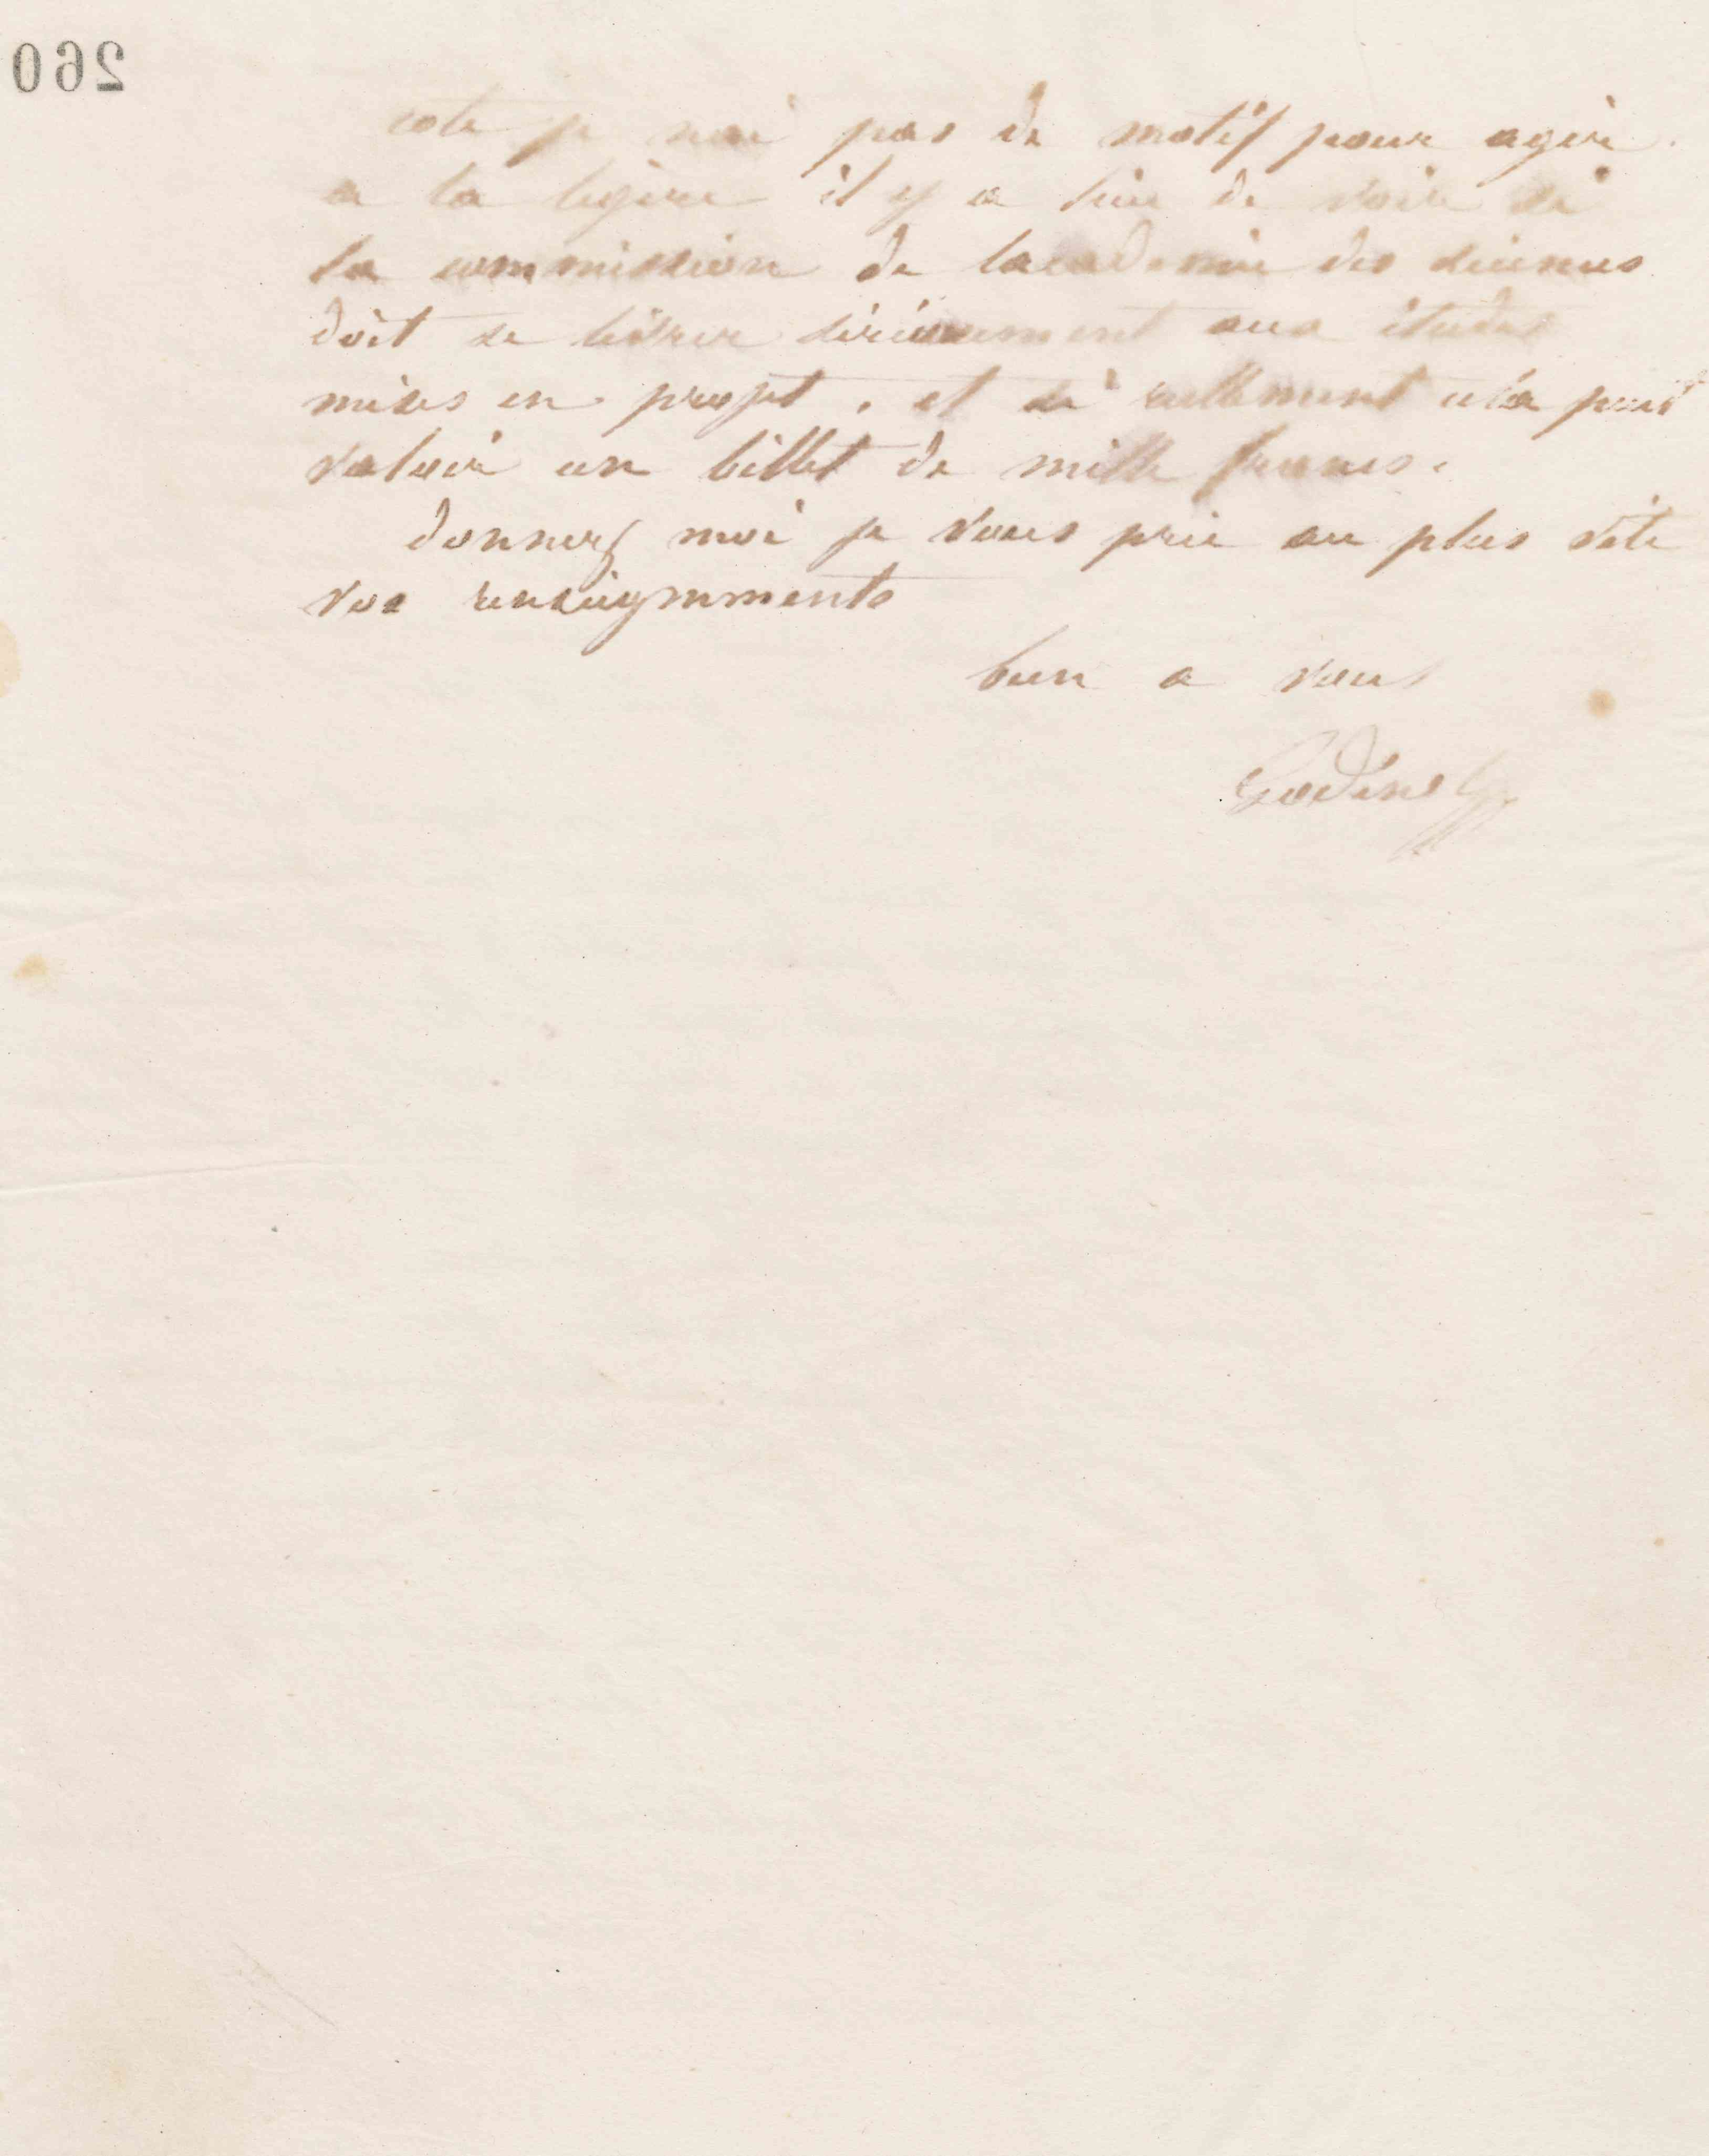 260
cote je nai pas de motif pour agir
a la légère il y a lieu de voir si
la commission de lacadémie des sciences
doit se livrer sérieusement aux études
mises en projet, et si réellement cela peut
valoir un billet de mille francs.
donnez moi je vous prie au plus vite
vos renseignements
bien a vous
Godin